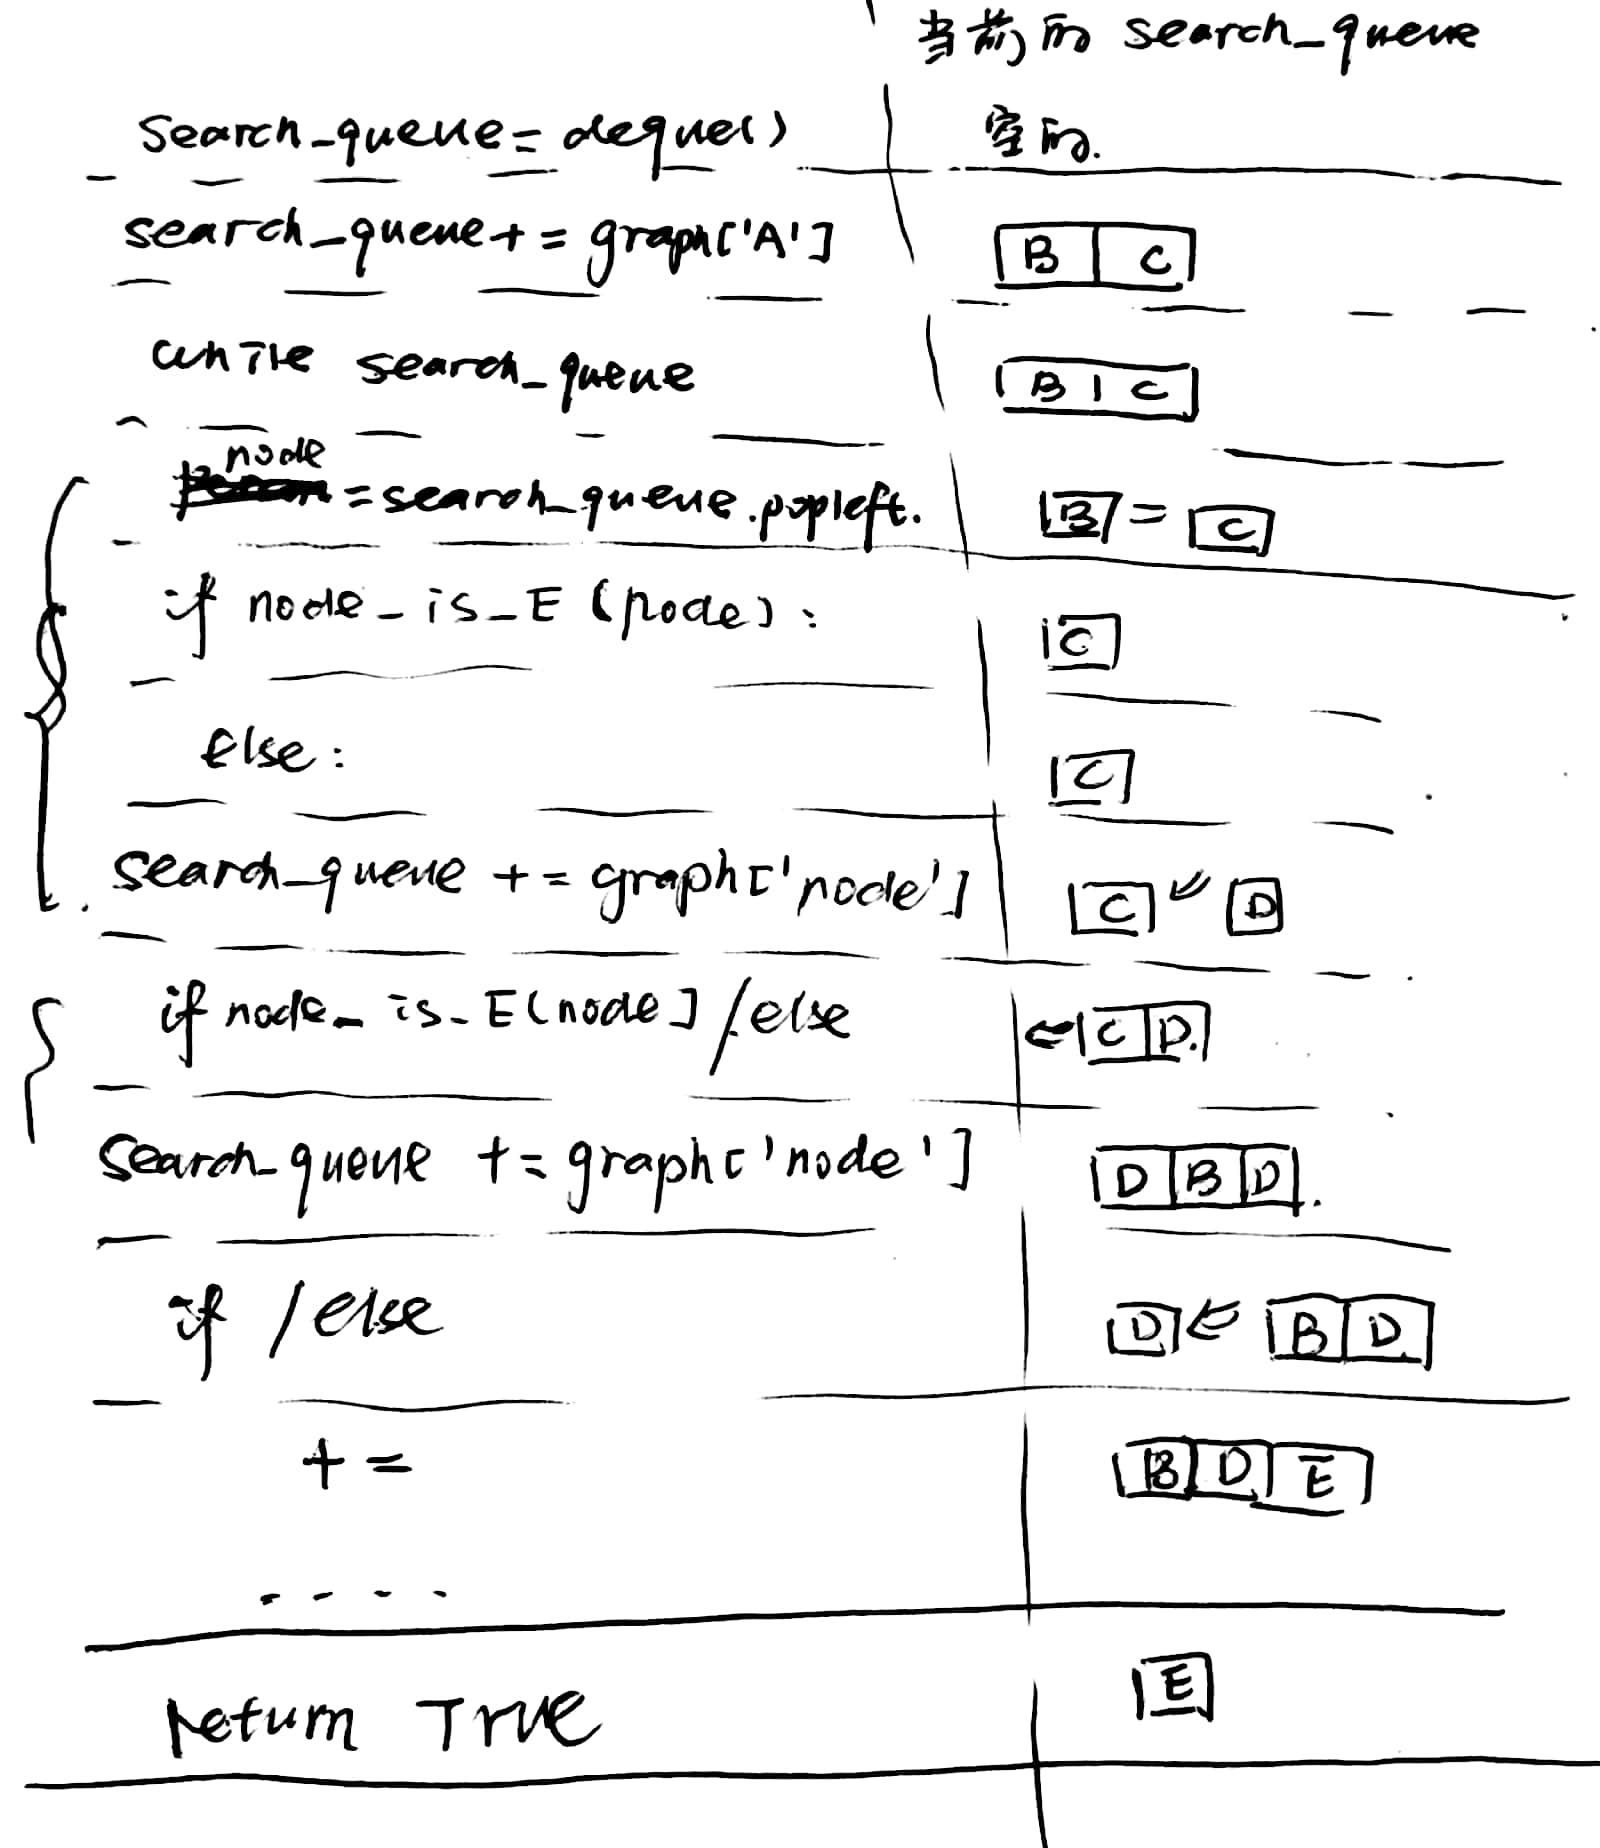 当前的 search_queue
search_queue = deque() 空的.
search_queue += graph['A'] B C
while search_queue B C
node
= search_queue.popleft. B = C
if node_is_E (node): C
else: C
search_queue += graph['node'] C D
if node_is_E(node] / else ← C D.
search_queue += graph['node'] D B D.
if / else D ← B D
+= B D E
....
return True E